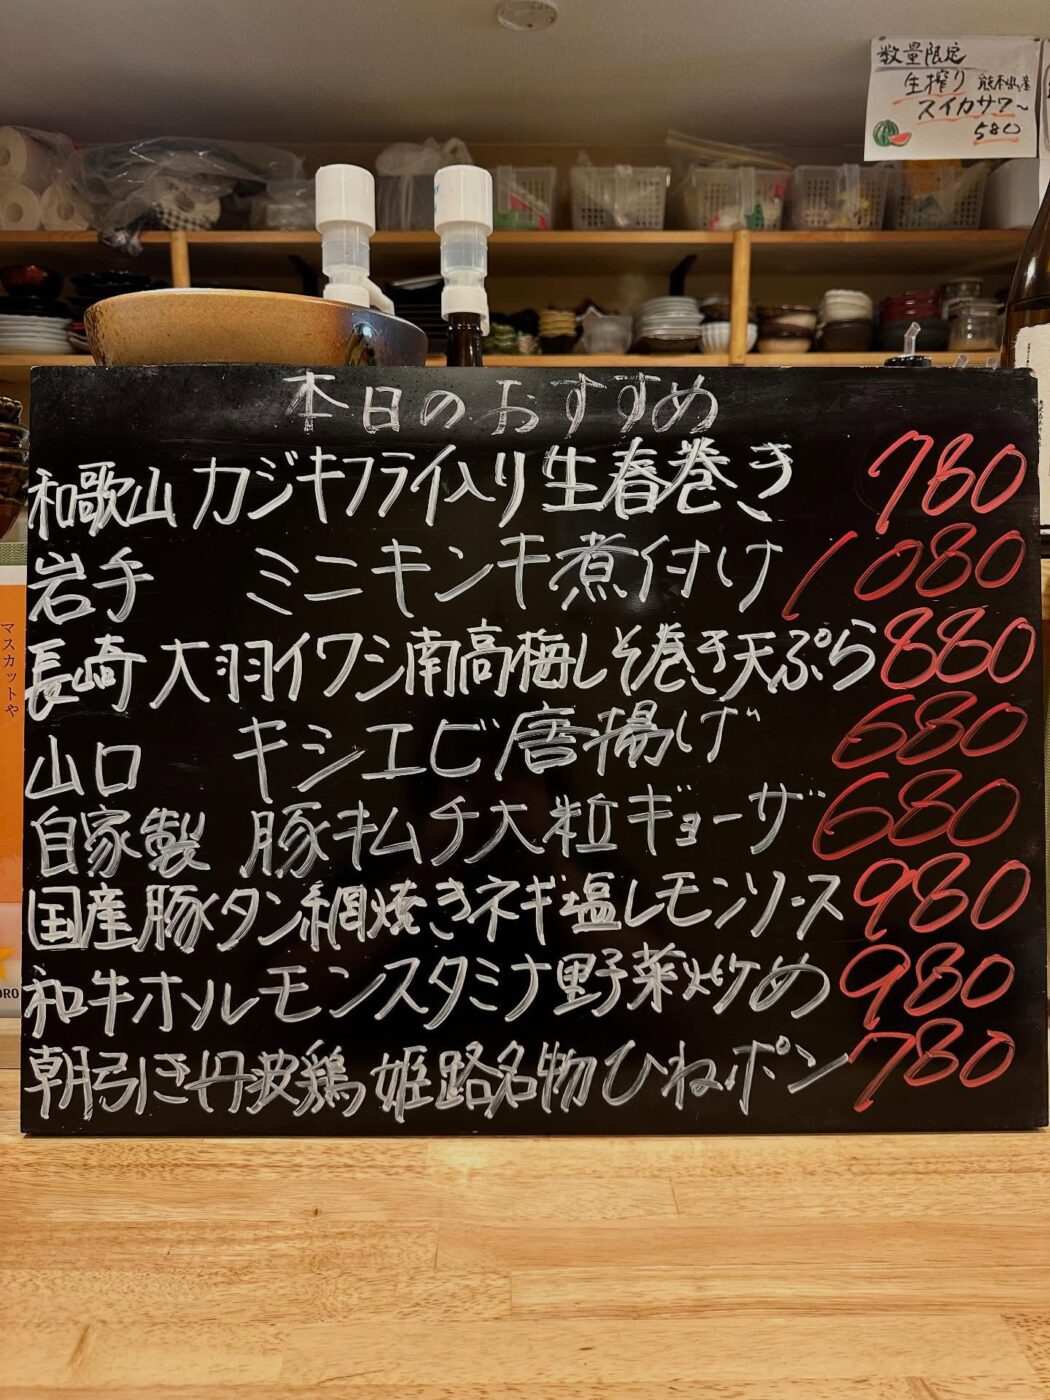 数量限定
生搾り 熊本県産
スイカサワ〜
580
本日のおすすめ
和歌山 カジキフライ入り生春巻き 780
岩手 ミニキンキ煮付け 1080
長崎 大羽イワシ南高梅しそ巻き天ぷら 880
山口 キシエビ唐揚げ 680
自家製 豚キムチ大粒ギョーザ 680
国産豚タン網焼きネギ塩レモンソース 980
和牛ホルモンスタミナ野菜炒め 980
朝引き丹波鶏 姫路名物ひねポン 780
マスカットや